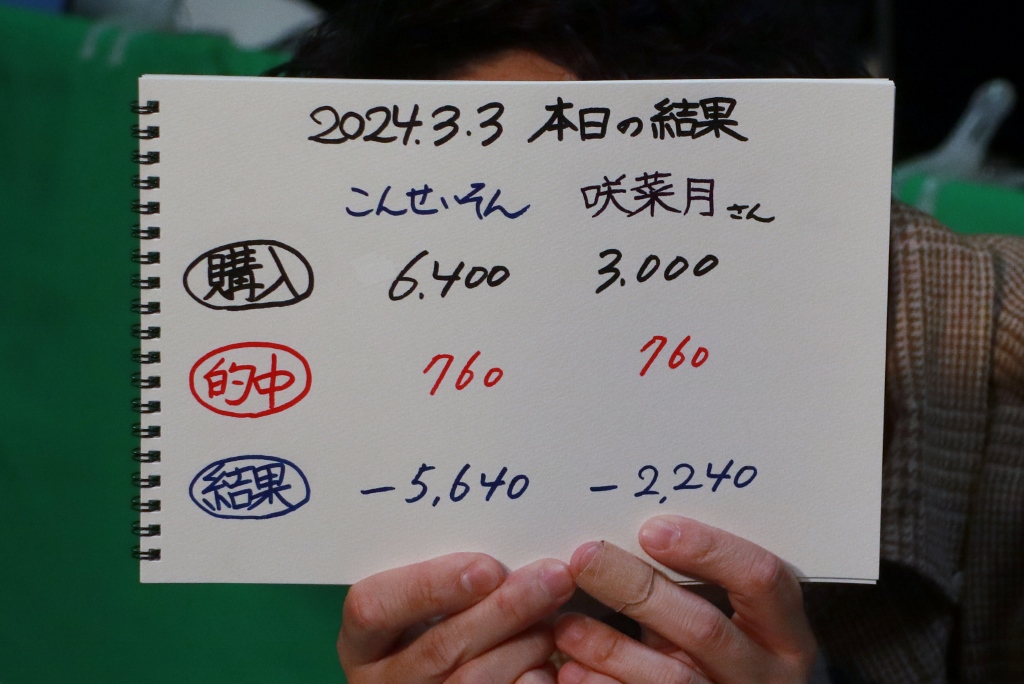 2024.3.3 本日の結果
こんせいそん 咲菜月さん
購入 6.400 3.000
的中 760 760
結果 -5,640 -2,240